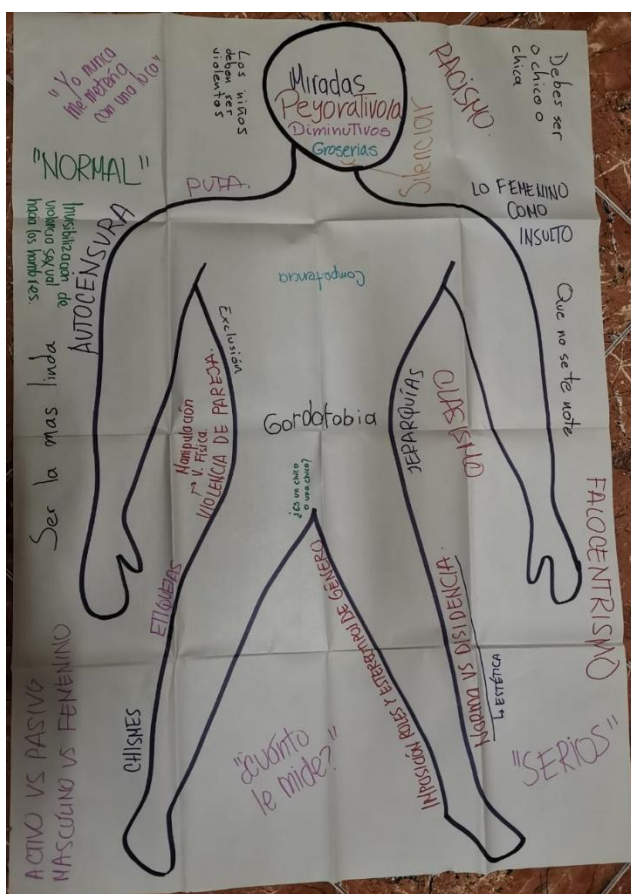 "Yo nunca
me metería
con una loca"
Los niños
deben ser
violentos
Miradas
Peyorativo/a
Diminutivos
Groserias
Silenciar
RACISMO.
Debes ser
o chico o
chica
"NORMAL"
PUTA.
LO FEMENINO
COMO
INSULTO
Invisibilización de
violencia sexual
hacia los hombres.
AUTOCENSURA
Competencia
Que no se te note
Ser la mas linda
Exclusión
Manipulación
V. Física.
VIOLENCIA DE PAREJA.
Gordofobia
¿Es un chico
o una chica?
JERARQUÍAS
FALOCENTRISMO
ETIQUETAS
IMPOSICIÓN ROLES Y ESTEREOTIPOS DE GÉNERO
Norma VS DISIDENCIA.
ESTÉTICA
CHISMES
"¿cuánto
le mide?"
"SERIOS"
ACTIVO VS PASIVO
MASCULINO VS FEMENINO